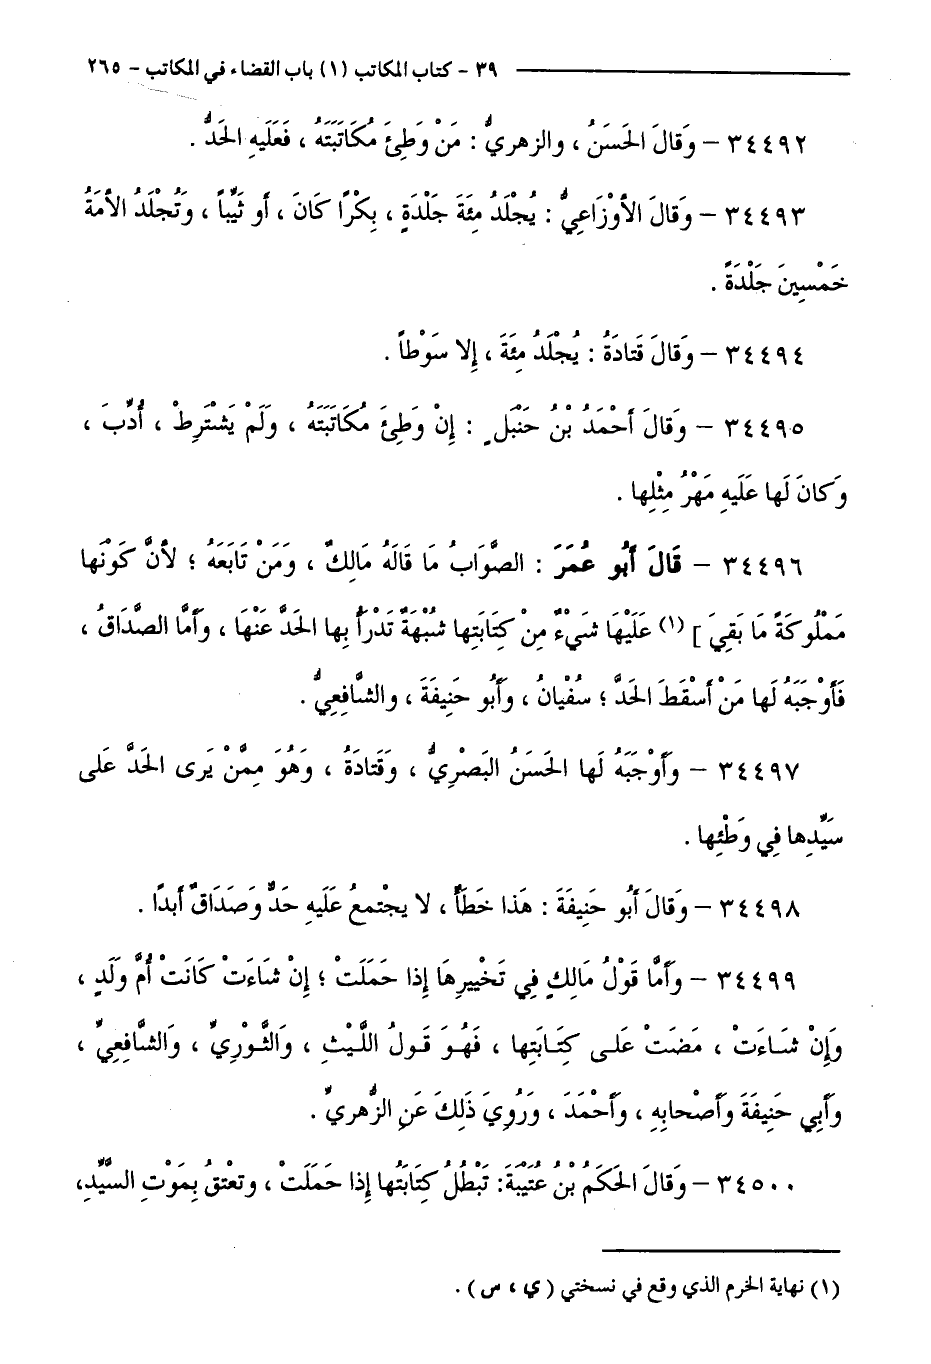 ٣٩ - كتاب المكاتب (١) باب القضاء في المكاتب - ٢٦٥
٣٤٤٩٢ - وَقالَ الحَسَنُ ، والزهريُّ : مَنْ وَطِئَ مُكَاتَبَتَهُ ، فَعَلَيهِ الحَدُّ .
٣٤٤٩٣ - وَقالَ الأوْزَاعِيُّ : يُجْلَدُ مِئَةَ جَلْدَةٍ ، بِكْرًا كَانَ ، أو ثَيِّباً ، وَتُجْلَدُ الأمَةُ
خَمْسِينَ جَلْدَةً .
٣٤٤٩٤ - وَقالَ قَتادَةُ : يُجْلَدُ مِئَةَ ، إلا سَوْطاً .
٣٤٤٩٥ - وَقالَ أحْمَدُ بْنُ حَنْبَلٍ : إنْ وَطِئَ مُكَاتَبَتَهُ ، وَلَمْ يَشْتَرِطْ ، أُدِّبَ ،
وَكانَ لَها عَلَيهِ مَهْرُ مِثْلِها .
٣٤٤٩٦ - قَالَ أَبُو عُمَرَ : الصَّوَابُ مَا قَالَهُ مَالِكٌ ، وَمَنْ تَابَعَهُ ؛ لأنَّ كَوْنَها
مَمْلُوكَةً مَا بَقِيَ ] (١) عَلَيْهَا شَيْءٌ مِنْ كِتابَتِها شُبْهَةٌ تَدْرَأُ بِها الحَدَّ عَنْهَا ، وَأمَّا الصَّدَاقُ ،
فَأوْجَبَهُ لَها مَنْ أسْقَطَ الحَدَّ ؛ سُفْيانُ ، وَأبُو حَنِيفَةَ ، والشَّافِعِيُّ .
٣٤٤٩٧ - وَأوْجَبَهُ لَها الحَسَنُ البَصْرِيُّ ، وَقَتادَةُ ، وَهُوَ مِمَّنْ يَرى الحَدَّ عَلى
سَيِّدِها فِي وَطْئِها .
٣٤٤٩٨ - وَقالَ أبُو حَنِيفَةَ : هَذا خَطَأٌ ، لا يجْتمعُ عَلَيهِ حَدٌّ وَصَدَاقٌ أبدًا .
٣٤٤٩٩ - وَأمَّا قَوْلُ مَالِكٍ فِي تَخْييرِهَا إذا حَمَلَتْ ؛ إنْ شاءَتْ كَانَتْ أُمَّ وَلَدٍ ،
وَإِنْ شَاءَتْ ، مَضَتْ عَلى كِتَابَتِها ، فَهُوَ قَولُ اللَّيْثِ ، وَالثَّوْرِيِّ ، وَالشَّافِعِيِّ ،
وَأبِي حَنِيفَةَ وَأصْحابِهِ ، وَأحْمَدَ ، وَرُوِيَ ذَلِكَ عَنِ الزُّهريِّ .
٣٤٥٠٠ - وَقَالَ الحَكَمُ بْنُ عُتَيْبَةَ: تَبْطُلُ كِتَابَتُها إذا حَمَلَتْ ، وتعْتقُ بِمَوْتِ السَّيِّدِ،
(١) نهاية الخرم الذي وقع في نسختي ( ي ، س ) .